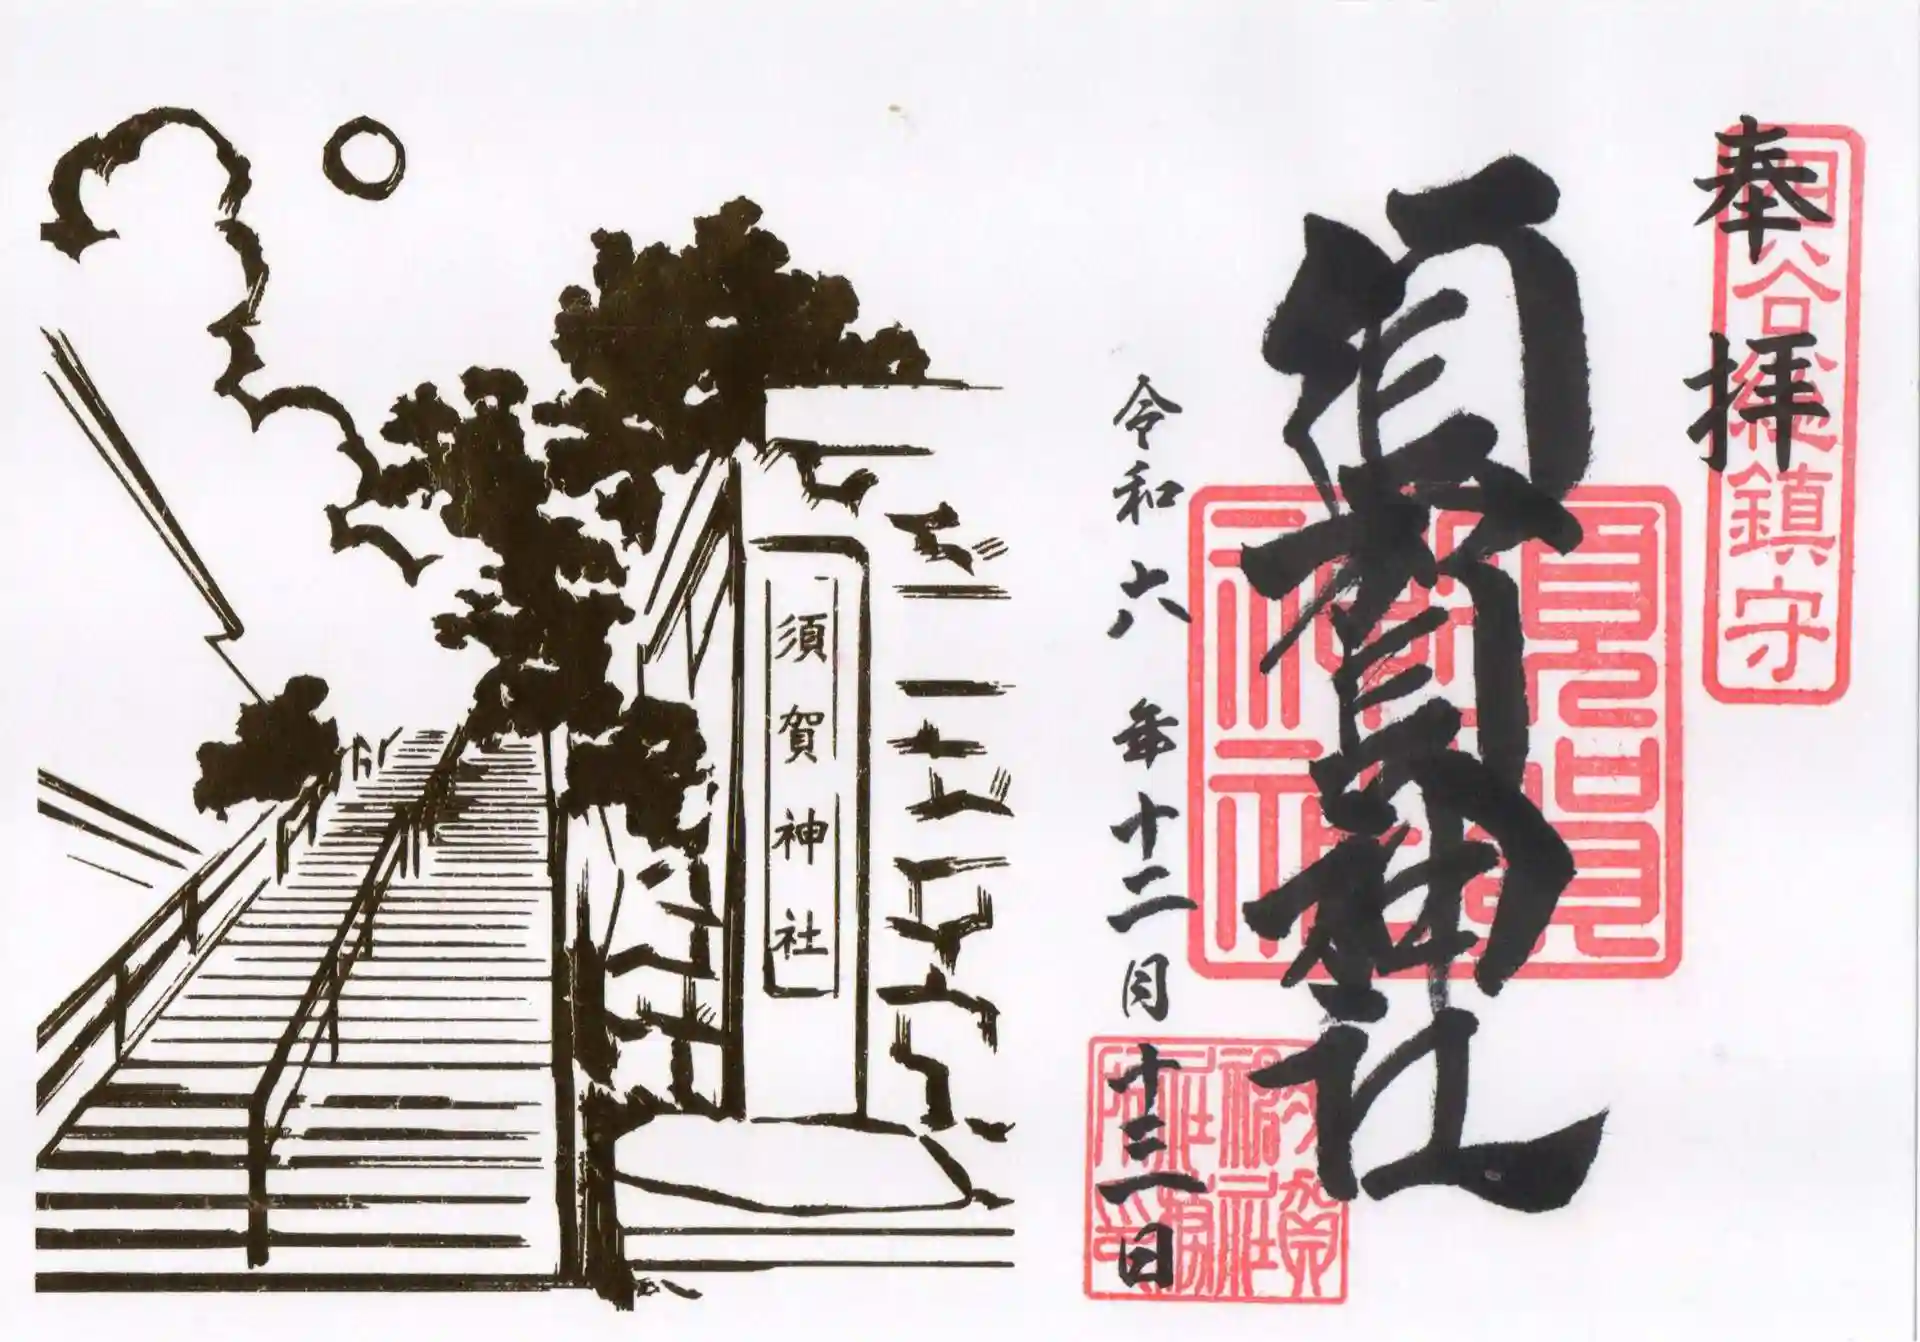 奉拝
四谷總鎮守
須賀神社
須賀神社
令和六年十二月十三日
須賀神社
須賀神社社務所印